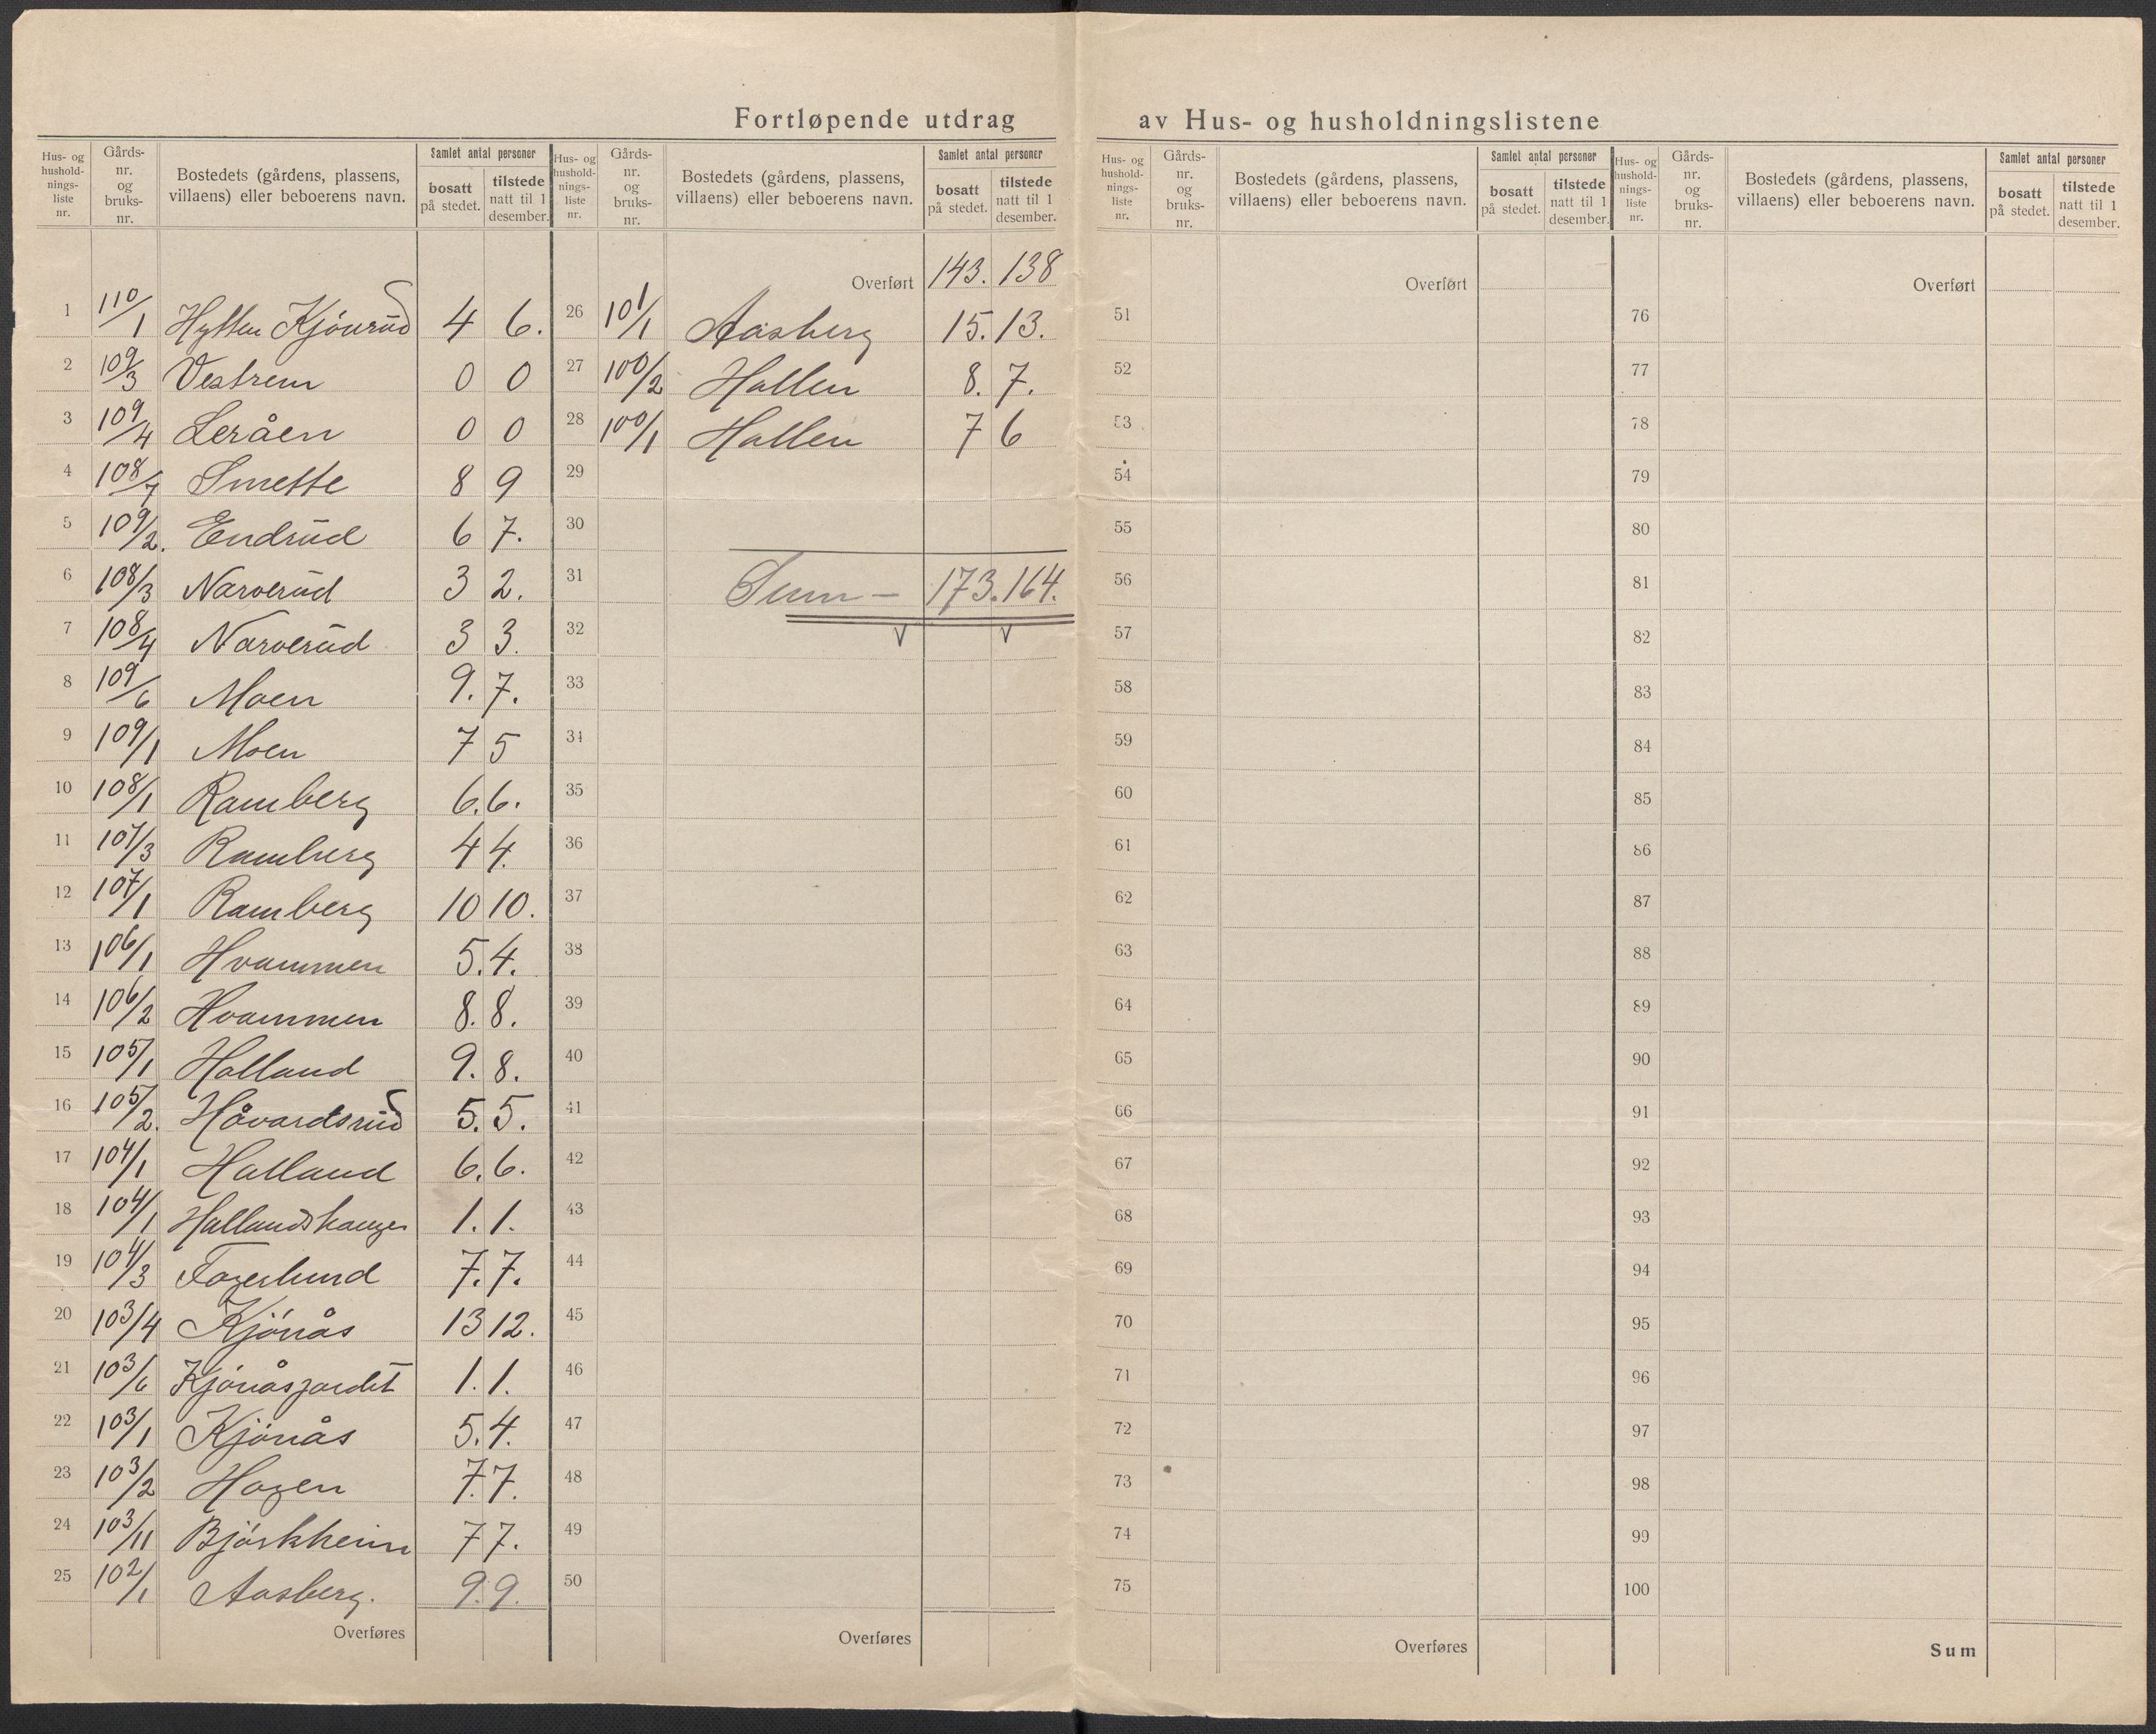 Fortløpende utdrag av Hus- og husholdningslistene
Hus- og hushold-nings-liste nr. | Gårds-nr. og bruks-nr. | Bostedets (gårdens, plassens, villaens) eller beboerens navn. | Samlet antal personer | bosatt på stedet. | tilstede natt til 1 desember.
1 110/1 Hytten Kjönrud 4 6.
2 109/3 Vestrem 0 0
3 109/4 Leråen 0 0
4 108/7 Smette 8 9
5 109/2. Endrud 6 7.
6 108/3 Narverud 3 2.
7 108/4 Narverud 3 3.
8 109/6 Moen 9. 7.
9 109/1 Moen 7 5
10 108/1 Ramberg 6. 6.
11 107/3 Ramberg 4 4.
12 107/1 Ramberg 10 10.
13 106/1 Hvammen 5. 4.
14 106/2 Hvammen 8. 8.
15 105/1 Halland 9. 8.
16 105/2. Håvardsrud 5. 5.
17 104/1 Halland 6. 6.
18 104/1 Hallandshaugen 1. 1.
19 104/3 Fagerlund 7. 7.
20 103/4 Kjönås 13 12.
21 103/6 Kjönåsjordet 1. 1.
22 103/1 Kjönås 5. 4.
23 103/2 Hagen 7. 7.
24 103/11 Björkheim 7 7.
25 102/1 Aasberg. 9. 9.
Overføres
Hus- og hushold-nings-liste nr. | Gårds-nr. og bruks-nr. | Bostedets (gårdens, plassens, villaens) eller beboerens navn. | Samlet antal personer | bosatt på stedet. | tilstede natt til 1 desember.
Overført 143. 138
26 101/1 Aasberg 15. 13.
27 100/2 Hallen 8. 7.
28 100/1 Hallen 7 6
29
30
31 Sum – 173. 164.
32
33
34
35
36
37
38
39
40
41
42
43
44
45
46
47
48
49
50
Overføres
Hus- og hushold-nings-liste nr. | Gårds-nr. og bruks-nr. | Bostedets (gårdens, plassens, villaens) eller beboerens navn. | Samlet antal personer | bosatt på stedet. | tilstede natt til 1 desember.
Overført
51
52
53
54
55
56
57
58
59
60
61
62
63
64
65
66
67
68
69
70
71
72
73
74
75
Overføres
Hus- og hushold-nings-liste nr. | Gårds-nr. og bruks-nr. | Bostedets (gårdens, plassens, villaens) eller beboerens navn. | Samlet antal personer | bosatt på stedet. | tilstede natt til 1 desember.
Overført
76
77
78
79
80
81
82
83
84
85
86
87
88
89
90
91
92
93
94
95
96
97
98
99
100
Sum